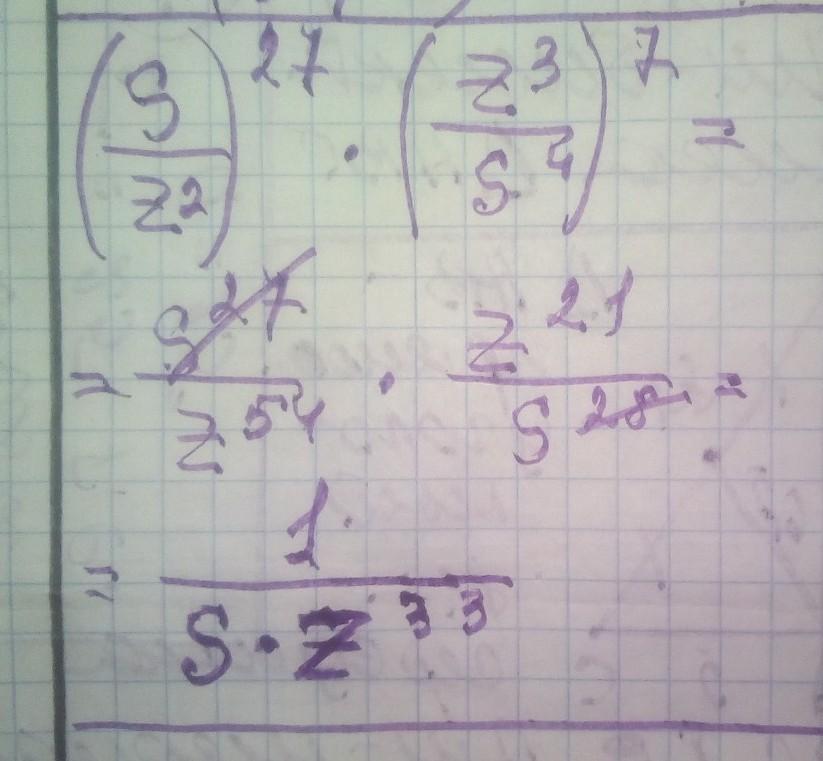 (S/z²)²⁷ · (z³/S⁴)⁷ =
= S²⁷/z⁵⁴ · z²¹/S²⁸ =
= 1/(S · z³³)